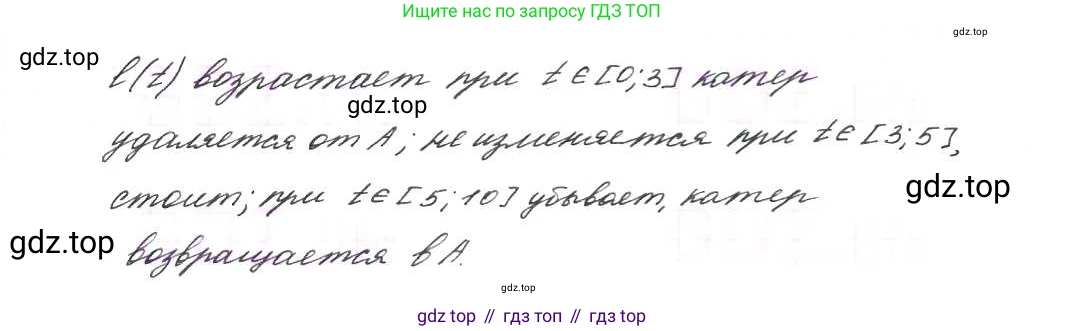 Ищите нас по запросу ГДЗ ТОП
gdz.top
gdz.top
l(t) возрастает при t ∈ [0; 3] катер
gdz.top
удаляется от А; не изменяется при t ∈ [3; 5],
стоит; при t ∈ [5; 10] убывает, катер
gdz.top
gdz.top
возвращается в А.
gdz.top
gdz.top // гдз топ // гдз top